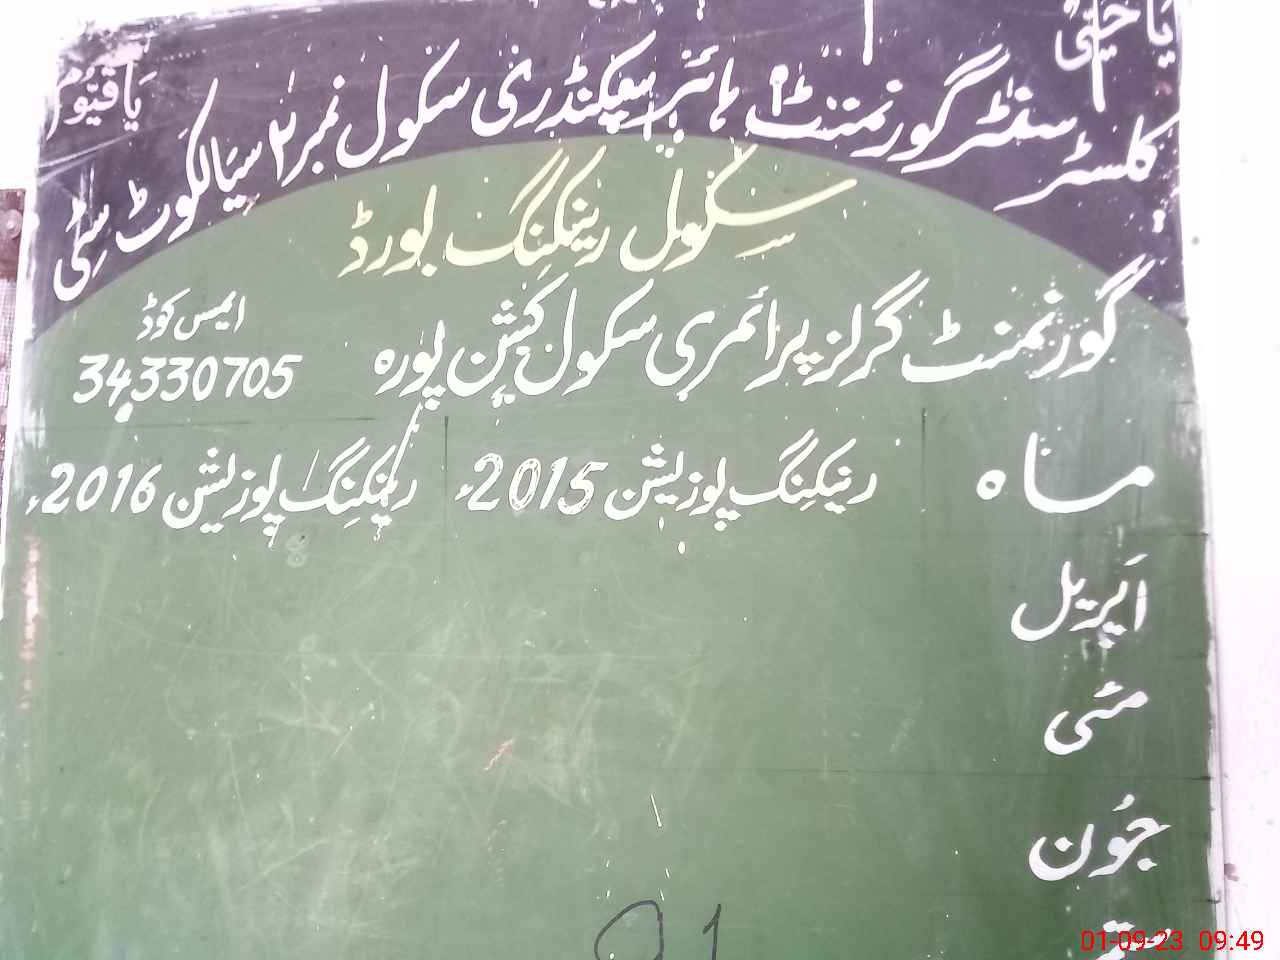 یا حَیُّ
یَا قَیُّوم
کلسٹر سنٹر گورنمنٹ ہائر سیکنڈری سکول نمبر ۲ سیالکوٹ سٹی
سکول رینکنگ بورڈ
گورنمنٹ گرلز پرائمری سکول کشن پورہ
ایمس کوڈ
34330705
ماہ رینکنگ پوزیشن 2015ء رینکنگ پوزیشن 2016ء
اَپریل
مئی
جُون
21
01-09-23 09:49